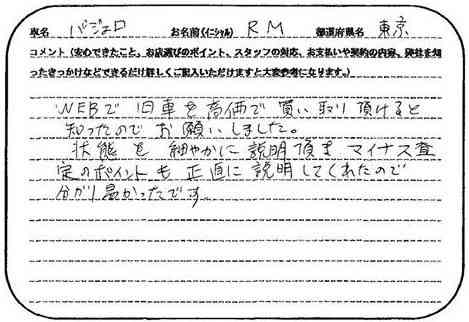 車名 パジェロ お名前(イニシャル) R M 都道府県名 東京
コメント(安心できたこと、お店選びのポイント、スタッフの対応、お支払いや契約の内容、弊社を知
ったきっかけなどできるだけ詳しくご記入いただけますと大変参考になります。)
WEBで旧車を高価で買い取り頂けると
知ったのでお願いしました。
状態を細やかに説明頂き マイナス査
定のポイントも正直に説明してくれたので
分かり易かったです。